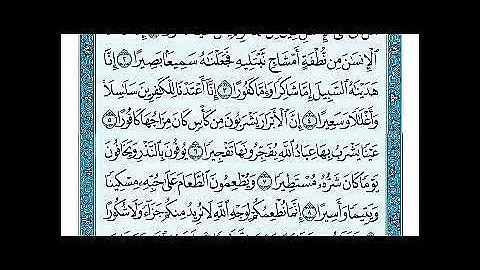 ٱلْإِنسَٰنَ مِن نُّطْفَةٍ أَمْشَاجٍ نَّبْتَلِيهِ فَجَعَلْنَٰهُ سَمِيعًۢا بَصِيرًا ٢ إِنَّا
هَدَيْنَٰهُ ٱلسَّبِيلَ إِمَّا شَاكِرًا وَإِمَّا كَفُورًا ٣ إِنَّآ أَعْتَدْنَا لِلْكَٰفِرِينَ سَلَٰسِلَا۟
وَأَغْلَٰلًا وَسَعِيرًا ٤ إِنَّ ٱلْأَبْرَارَ يَشْرَبُونَ مِن كَأْسٍ كَانَ مِزَاجُهَا كَافُورًا ٥
عَيْنًا يَشْرَبُ بِهَا عِبَادُ ٱللَّهِ يُفَجِّرُونَهَا تَفْجِيرًا ٦ يُوفُونَ بِٱلنَّذْرِ وَيَخَافُونَ
يَوْمًا كَانَ شَرُّهُۥ مُسْتَطِيرًا ٧ وَيُطْعِمُونَ ٱلطَّعَامَ عَلَىٰ حُبِّهِۦ مِسْكِينًا
وَيَتِيمًا وَأَسِيرًا ٨ إِنَّمَا نُطْعِمُكُمْ لِوَجْهِ ٱللَّهِ لَا نُرِيدُ مِنكُمْ جَزَآءً وَلَا شُكُورًا